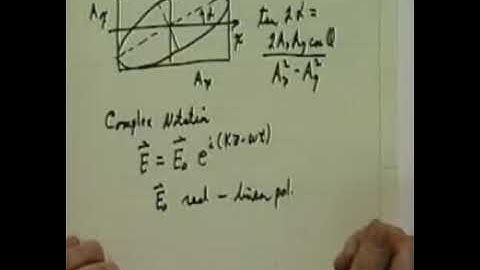 Ay
α
x
Ax
tan 2α =
2AxAy cos Q
Ax² - Ay²
Complex Notation
E⃗ = E⃗₀ e^i(kz-ωt)
E⃗₀ real - linear pol.